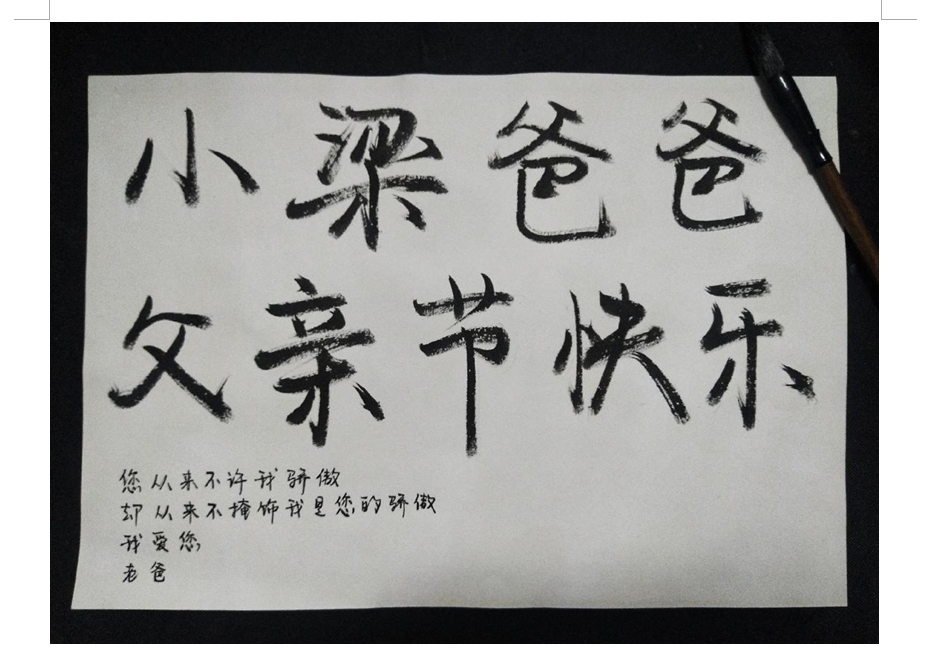 小梁爸爸
父亲节快乐
您从来不许我骄傲
却从来不掩饰我是您的骄傲
我爱您,
老爸